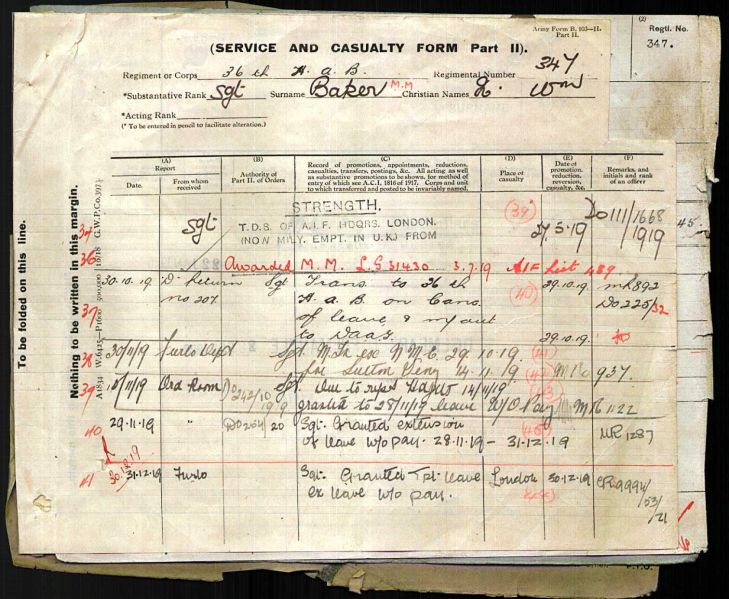 Army Form B. 103—II.
Part II.
(2)
Regtl. No.
347.
(SERVICE AND CASUALTY FORM Part II).
Regiment or Corps 36 th H. a. B. Regimental Number 347
*Substantive Rank Sgt Surname Baker M.M Christian Names Wm
*Acting Rank
(* To be entered in pencil to facilitate alteration.)
To be folded on this line.
Nothing to be written in this margin.
(A)
Report
Date.
From whom received
(B)
Authority of Part II. of Orders
(C)
Record of promotions, appointments, reductions, casualties, transfers, postings, &c. All acting as well as substantive promotions to be shown, for method of entry of which see A.C.I. 1816 of 1917. Corps and unit to which transferred and posted to be invariably named.
(D)
Place of casualty
(E)
Date of promotion, reduction, reversion, casualty, &c.
(F)
Remarks, and initials and rank of an officer
STRENGTH.
Sgt T.D.S. OF A.I.F. HDQRS. LONDON. (39) 5.19 DO 111/1668
(NOW MILY. EMPT. IN U.K.) FROM 1919
36 Awarded M. M. LG 31430 3.7.19 AIF List 489
37 30.10.19 D. Return Sgt Trans to 36 th (40) 29.10.19
no 207 H. a. B on Canc. DO 225/32
of leave & m/out
to 29.10.19
38 30/11/19 Furlo Sgt 29.10.19 (41)
Sutton Veny 14.11.19 937
39 Ord Room DO 242/10 Sgt Due to 14/11/19
granted to 28/11/19 leave W/O Pay 1122
40 29.11.19 " DO 254/20 Sgt. Granted extension
of leave w/o pay. 28.11.19 – 31.12.19 MR 1287
41 30.12.19
31.12.19 Furlo Sgt. Granted leave London 30.12.19
ex leave w/o pay. 53/21